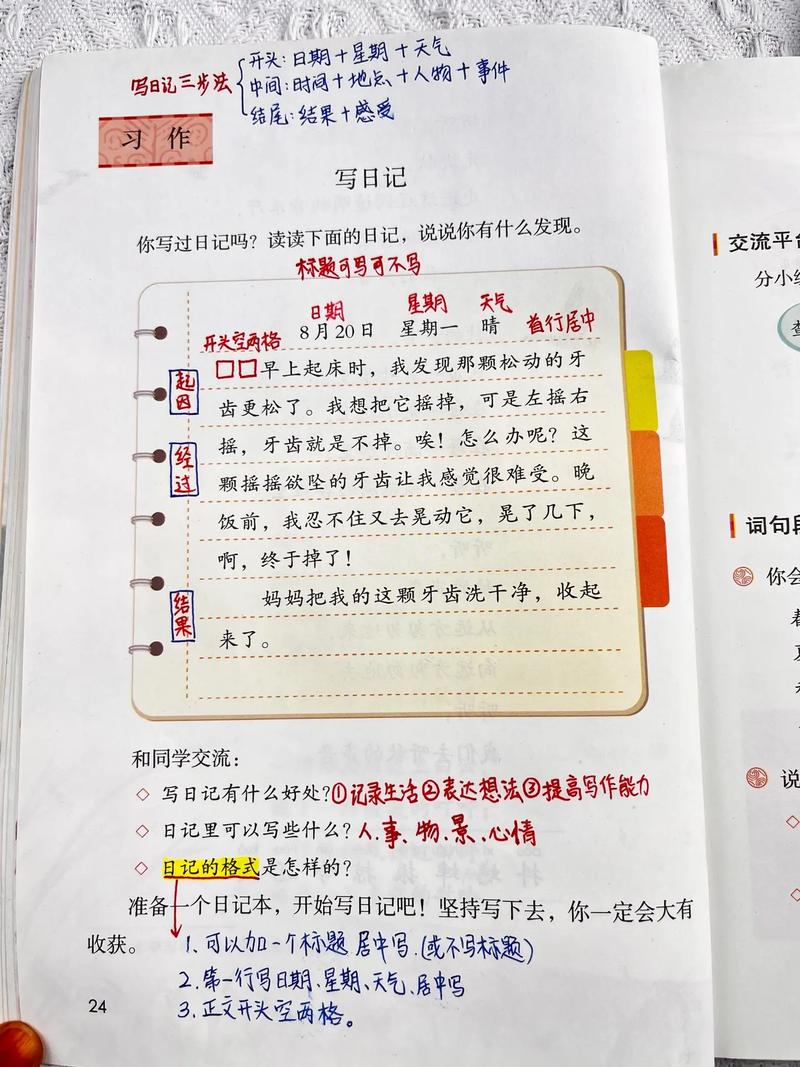 写日记三步法
开头:日期+星期+天气
中间:时间+地点+人物+事件
结尾:结果+感受
习作
写日记
你写过日记吗?读读下面的日记,说说你有什么发现。
标题可写可不写
日期 星期 天气
开头空两格 8月20日 星期一 晴 首行居中
起因
早上起床时,我发现那颗松动的牙
齿更松了。我想把它摇掉,可是左摇右
经过
摇,牙齿就是不掉。唉!怎么办呢?这
颗摇摇欲坠的牙齿让我感觉很难受。晚
饭前,我忍不住又去晃动它,晃了几下,
啊,终于掉了!
结果
妈妈把我的这颗牙齿洗干净,收起
来了。
和同学交流:
◇ 写日记有什么好处?①记录生活②表达想法③提高写作能力
◇ 日记里可以写些什么?人、事、物、景、心情
◇ 日记的格式是怎样的?
准备一个日记本,开始写日记吧!坚持写下去,你一定会大有
收获。
1.可以加一个标题 居中写(或不写标题)
2.第一行写日期、星期、天气、居中写
3.正文开头空两格。
24
交流平台
分小组
查
词句段
你会
说